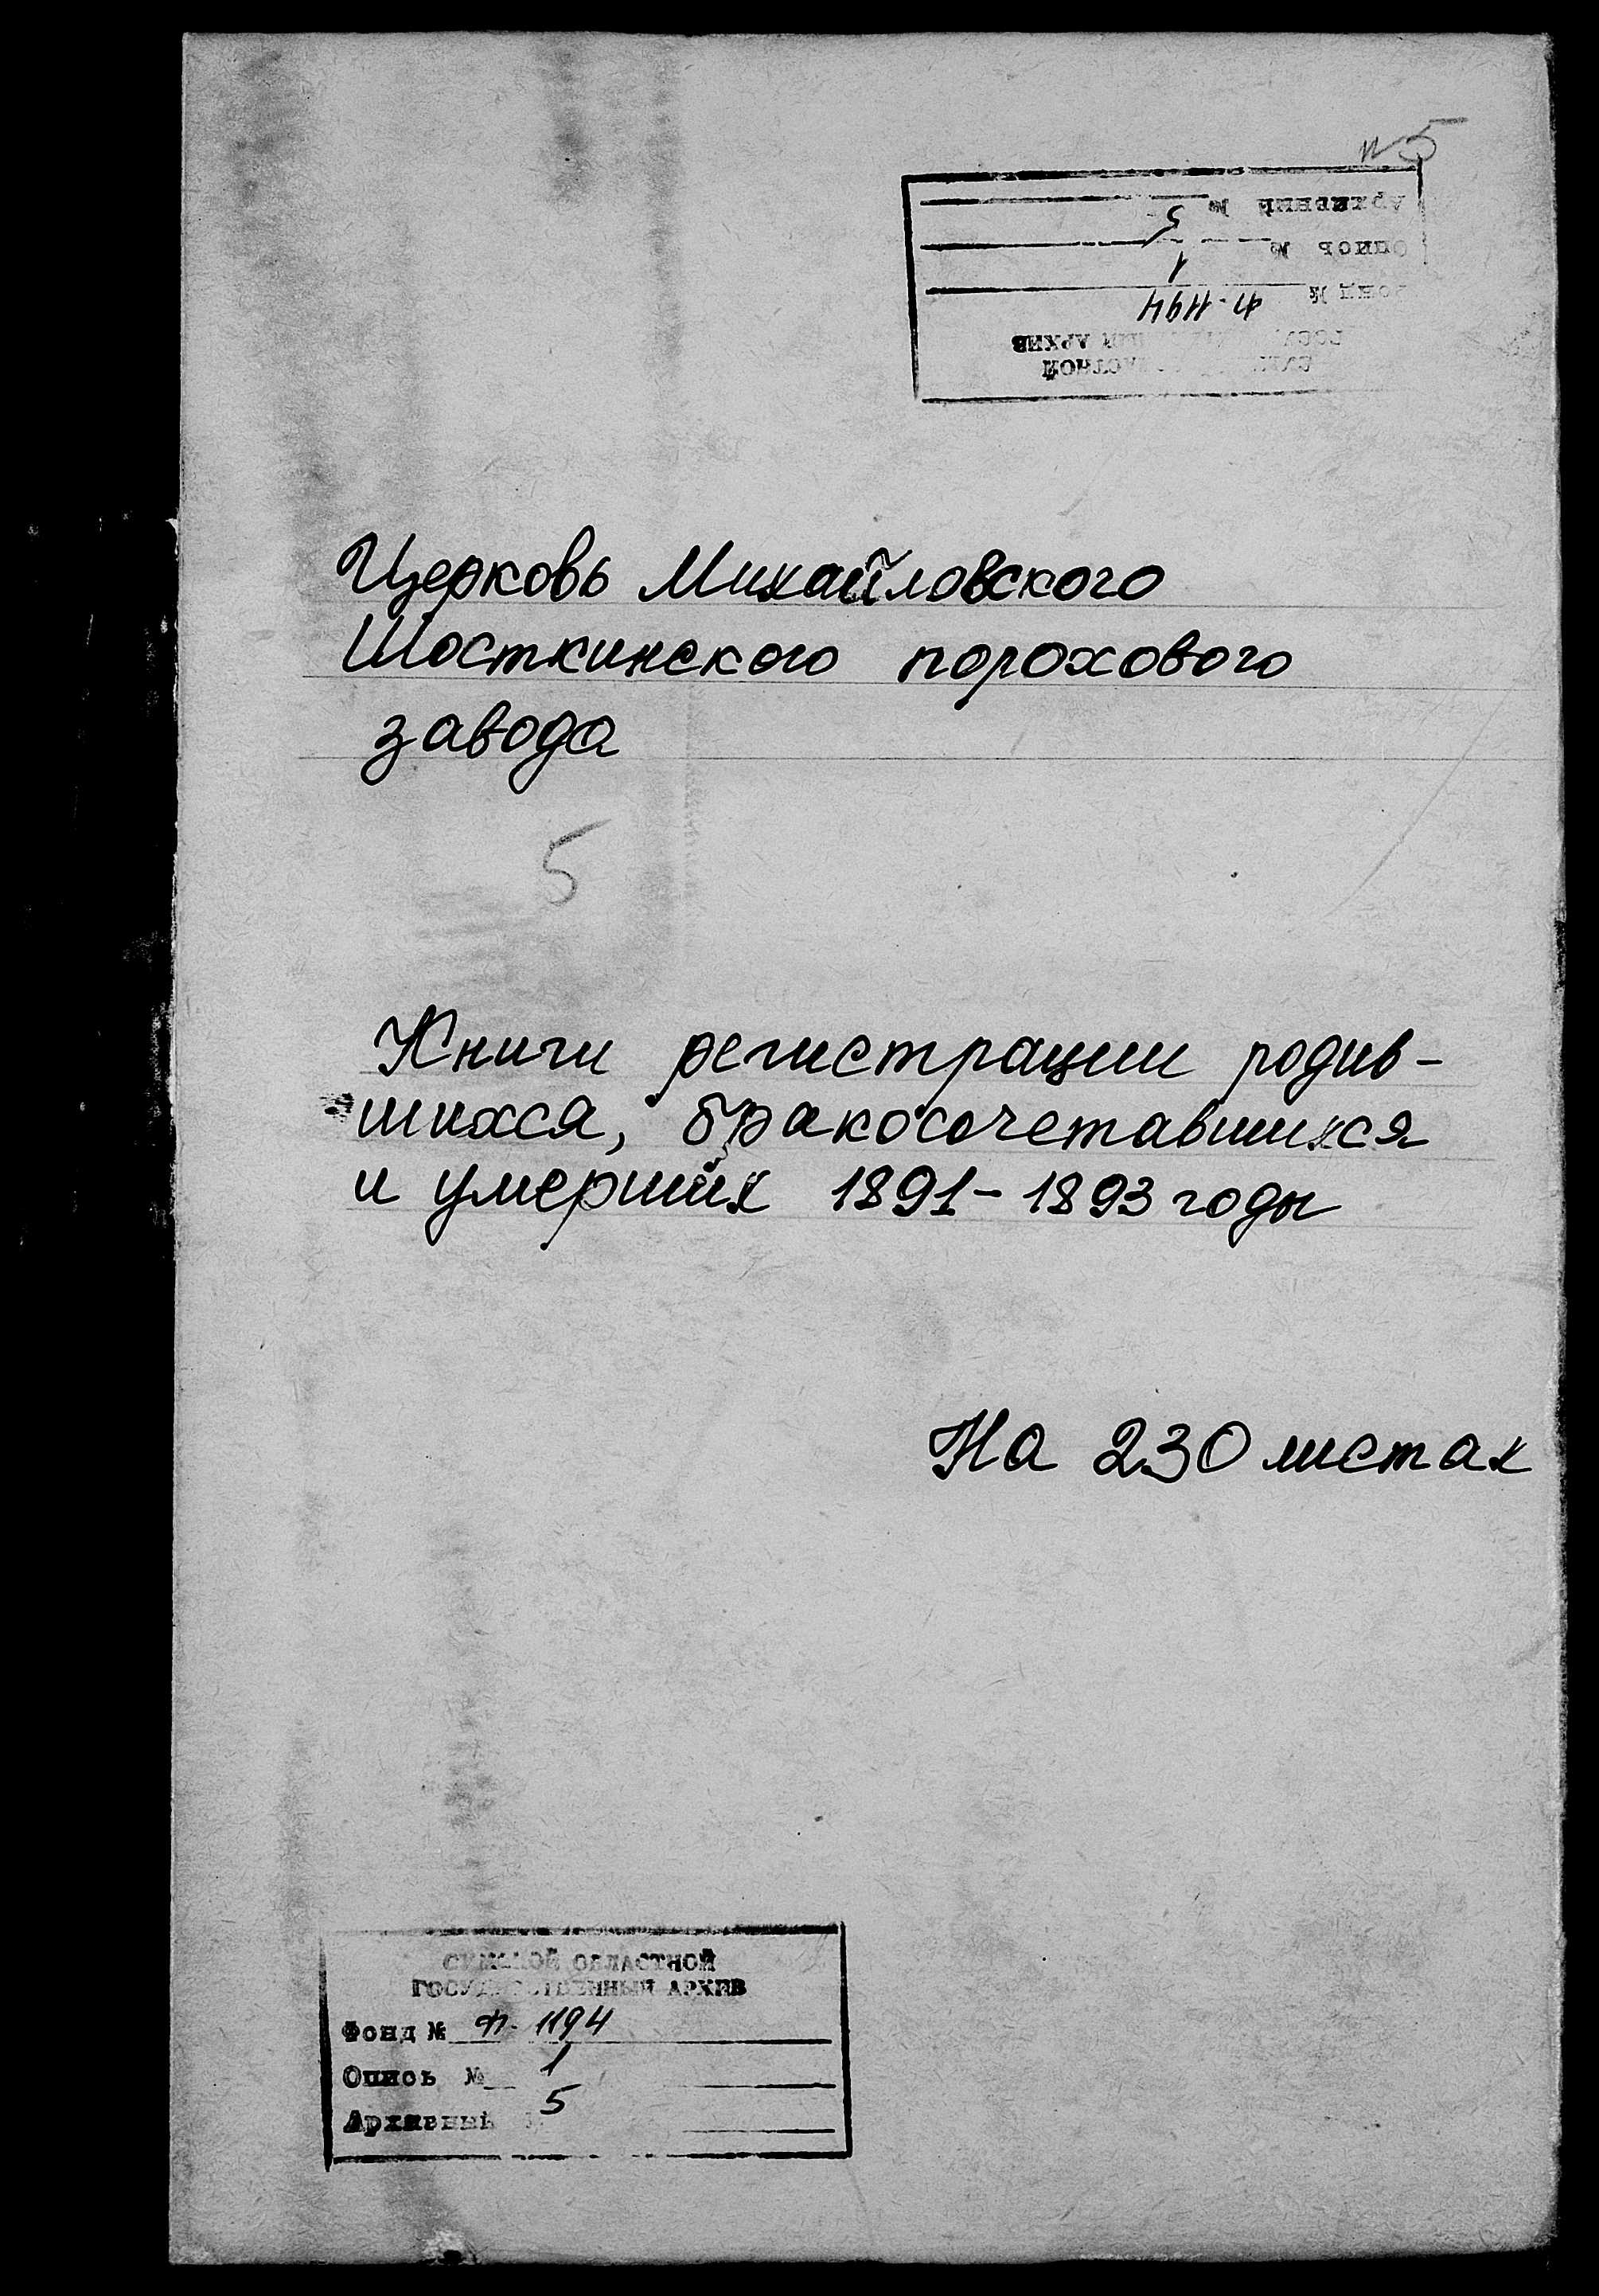 № 5
Архивный № 5
Опись № 1
Фонд № Ф-1194
АРХИВ
Церковь Михайловского
Шосткинского порохового
завода
5
Книги регистрации родив-
шихся, бракосочетавшихся
и умерших 1891-1893 годы
На 230 листах
СУМСКОЙ ОБЛАСТНОЙ
ГОСУДАРСТВЕННЫЙ АРХИВ
Фонд № Ф-1194
Опись № 1
Архивный № 5